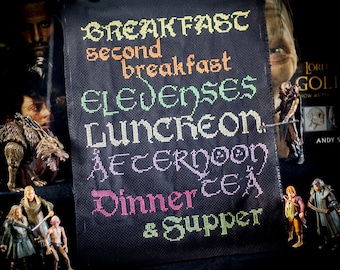 BREAKFAST
second
breakfast
ELEVENSES
LUNCHEON
AFTERNOON
TEA
Dinner
& Supper
LORD
GOLL
ANDY S